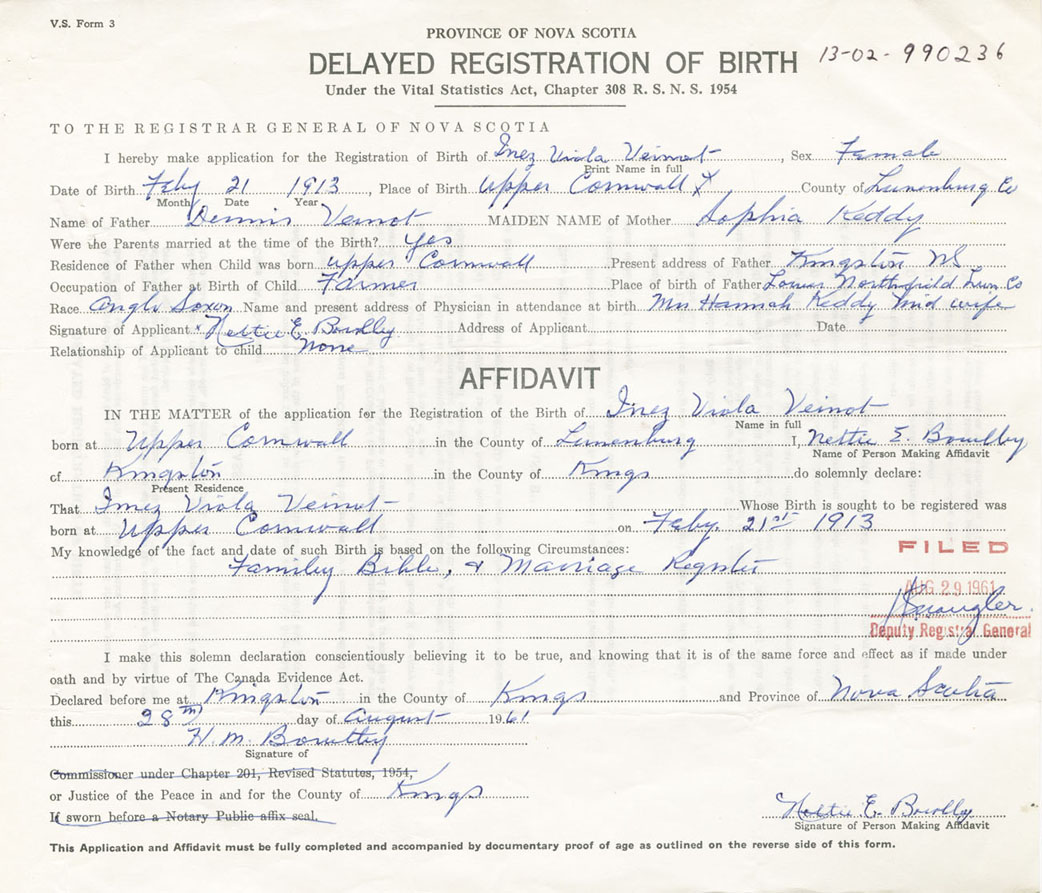 V.S. Form 3
PROVINCE OF NOVA SCOTIA
DELAYED REGISTRATION OF BIRTH 13-02-990236
Under the Vital Statistics Act, Chapter 308 R. S. N. S. 1954
TO THE REGISTRAR GENERAL OF NOVA SCOTIA
I hereby make application for the Registration of Birth of Inez Viola Veinot, Sex Female
Print Name in full
Date of Birth Feby 21 1913, Place of Birth Upper Cornwall County of Lunenburg Co
Month Date Year
Name of Father Dennis Veinot MAIDEN NAME of Mother Sophia Keddy
Were the Parents married at the time of the Birth? yes
Residence of Father when Child was born upper Cornwall Present address of Father Kingston NS
Occupation of Father at Birth of Child Farmer Place of birth of Father Lower Northfield Lun. Co
Race Anglo Saxon Name and present address of Physician in attendance at birth Mrs Hannah Keddy Mid wife
Signature of Applicant x Nettie E. Bowlby Address of Applicant Date
Relationship of Applicant to child None
AFFIDAVIT
IN THE MATTER of the application for the Registration of the Birth of Inez Viola Veinot
Name in full
born at Upper Cornwall in the County of Lunenburg I, Nettie E. Bowlby
Name of Person Making Affidavit
of Kingston in the County of Kings do solemnly declare:
Present Residence
That Inez Viola Veinot Whose Birth is sought to be registered was
born at Upper Cornwall on Feby. 21st 1913
My knowledge of the fact and date of such Birth is based on the following Circumstances:
FILED
Familey Bible, & Marriage Register
AUG 29 1961
Deputy Registrar General
I make this solemn declaration conscientiously believing it to be true, and knowing that it is of the same force and effect as if made under
oath and by virtue of The Canada Evidence Act.
Declared before me at Kingston in the County of Kings and Province of Nova Scotia
this 28th day of August 1961
H. M. Bowlby
Signature of
Commissioner under Chapter 201, Revised Statutes, 1954,
or Justice of the Peace in and for the County of Kings
If sworn before a Notary Public affix seal.
Nettie E. Bowlby
Signature of Person Making Affidavit
This Application and Affidavit must be fully completed and accompanied by documentary proof of age as outlined on the reverse side of this form.